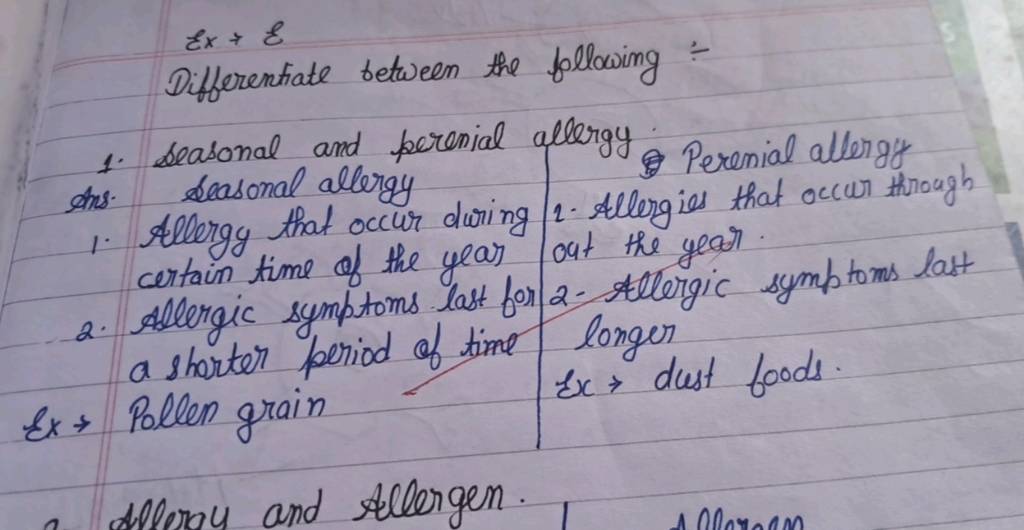 Ex → E
Differentiate between the following ÷
1. Seasonal and perenial allergy.
Ans. Seasonal allergy
1. Allergy that occur during
certain time of the year
2. Allergic symptoms last for
a shorter period of time
Ex → Pollen grain
Perenial allergy
1. Allergies that occur through
out the year.
2- Allergic symptoms last
longer
Ex → dust foods.
Allergy and Allergen.
Allergen